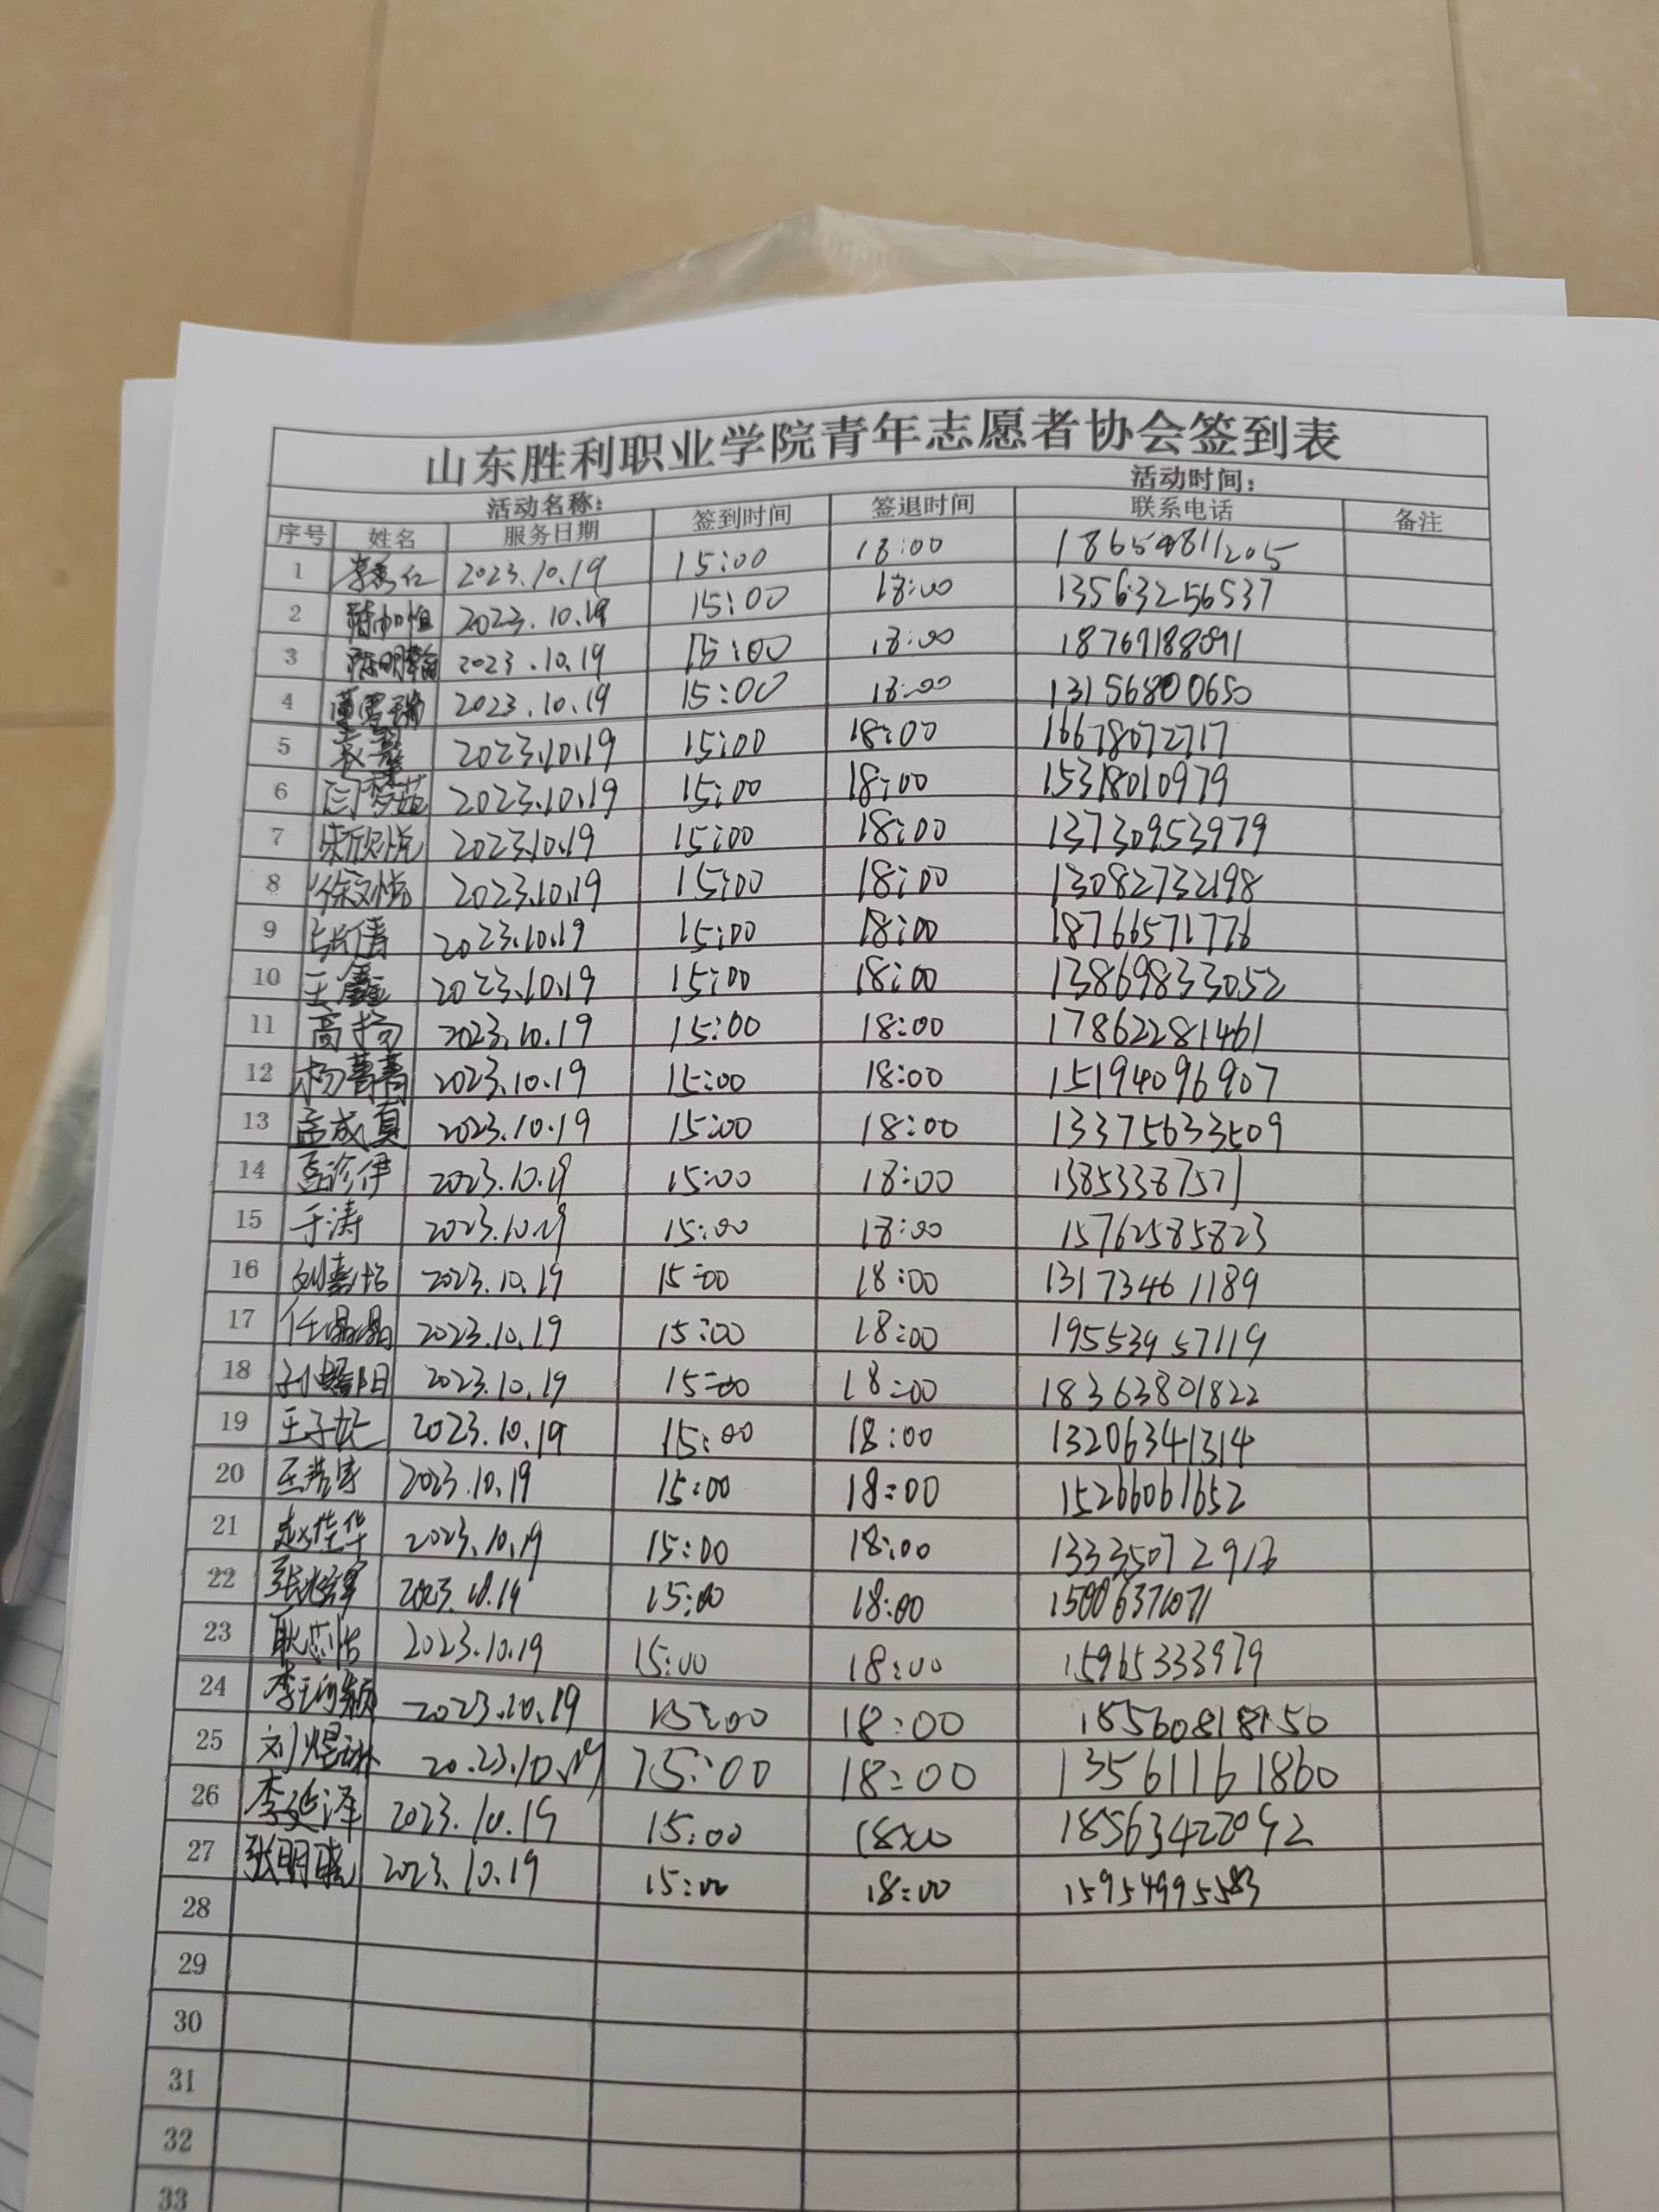 山东胜利职业学院青年志愿者协会签到表
活动名称: 活动时间:
序号 姓名 服务日期 签到时间 签退时间 联系电话 备注
1 2023.10.19 15:00 18:00
2 2023.10.19 15:00 18:00 13563256537
3 2023.10.19 15:00 18:00 18769188091
4 2023.10.19 15:00 18:00 13156800650
5 2023.10.19 15:00 18:00 16678072717
6 2023.10.19 15:00 18:00 15318010979
7 2023.10.19 15:00 18:00 13730953979
8 徐文怡 2023.10.19 15:00 18:00 13082732198
9 张倩 2023.10.19 15:00 18:00 18766571776
10 王鑫 2023.10.19 15:00 18:00 13869833052
11 高扬 2023.10.19 15:00 18:00 17862281461
12 杨菁菁 2023.10.19 15:00 18:00 15194096907
13 孟成真 2023.10.19 15:00 18:00 13375633509
14 2023.10.19 15:00 18:00 13853387571
15 于涛 2023.10.19 15:00 18:00 15762585823
16 2023.10.19 15:00 18:00 13173461189
17 任晶晶 2023.10.19 15:00 18:00 19553957119
18 2023.10.19 15:00 18:00 18363801822
19 2023.10.19 15:00 18:00 13206341314
20 2023.10.19 15:00 18:00 15266061652
21 赵佳华 2023.10.19 15:00 18:00
22 2023.10.19 15:00 18:00
23 耿芯怡 2023.10.19 15:00 18:00 15965333979
24 2023.10.19 15:00 18:00 18560818150
25 刘煜琳 2023.10.19 15:00 18:00 13561161860
26 李延泽 2023.10.19 15:00 18:00
27 张明晓 2023.10.19 15:00 18:00 15954995583
28
29
30
31
32
33